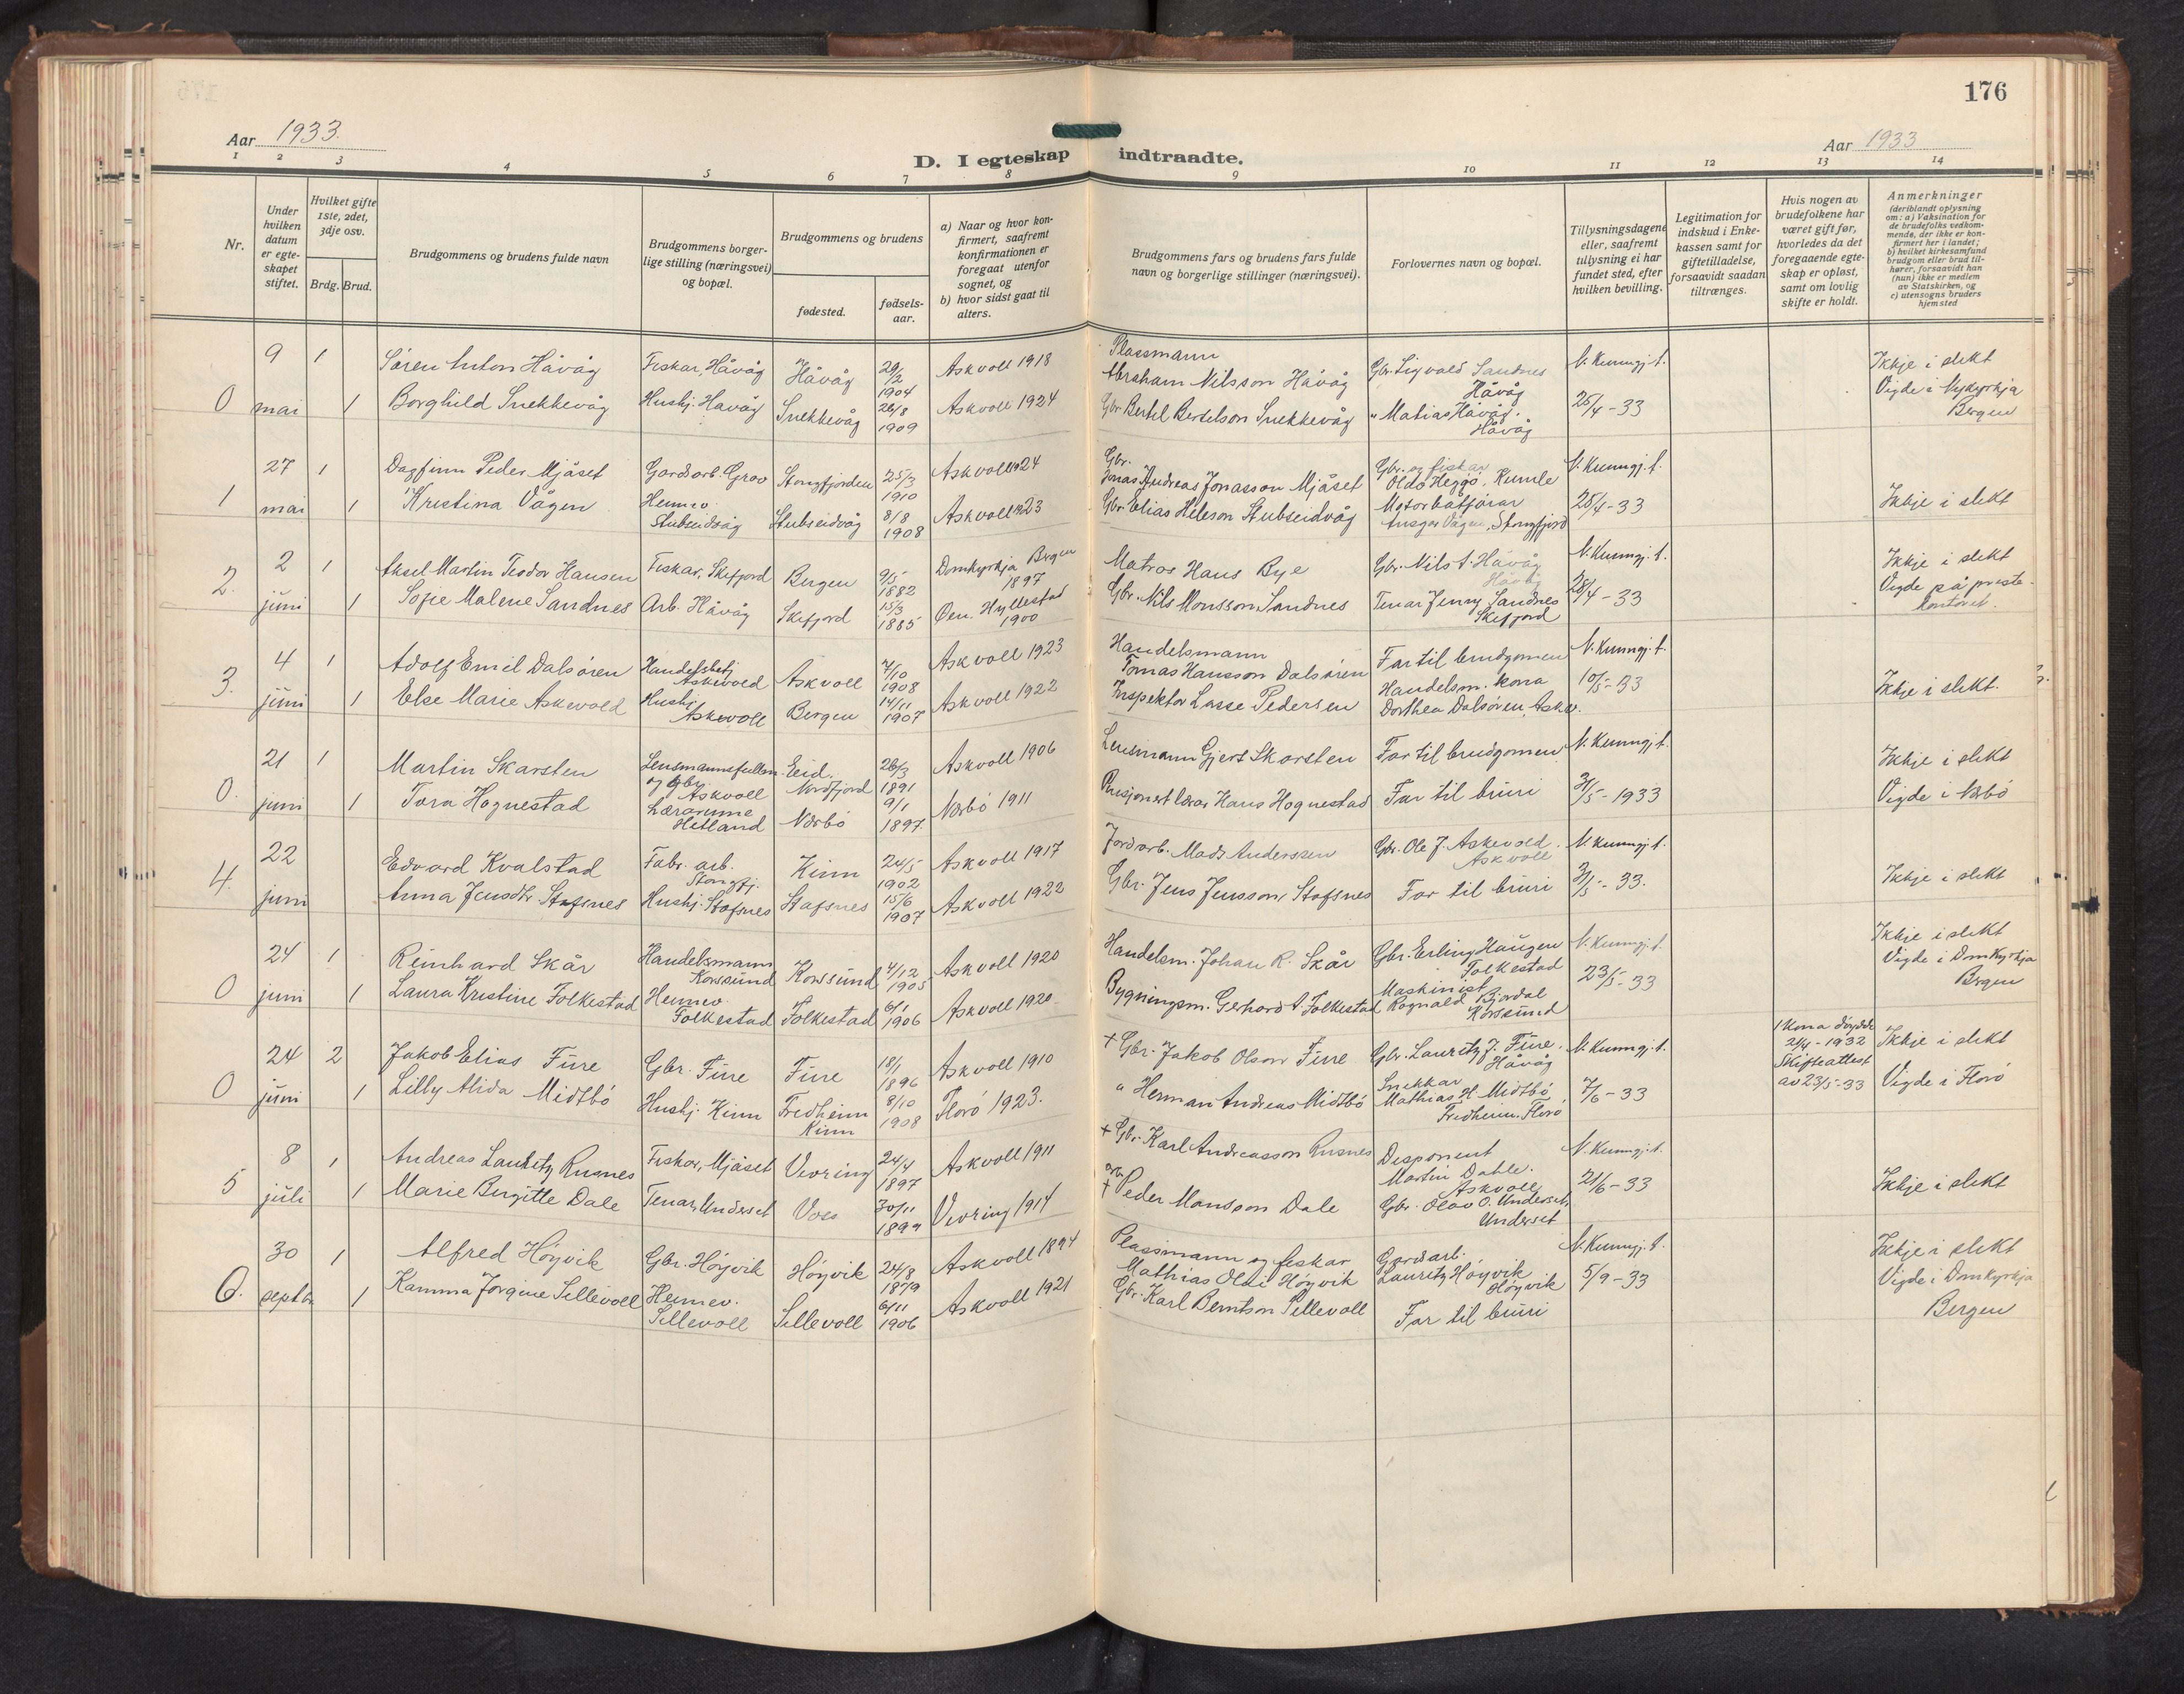 176
Aar 1933.
D. I egteskap indtraadte.
Aar 1933
1 2 3 4 5 6 7 8 9 10 11 12 13 14
Nr.
Under hvilken datum er egte-skapet stiftet.
Hvilket gifte 1ste, 2det, 3dje osv.
Brdg. Brud.
Brudgommens og brudens fulde navn
Brudgommens borger-lige stilling (næringsvei) og bopæl.
Brudgommens og brudens
fødested.
fødsels-aar.
a) Naar og hvor kon-firmert, saafremt konfirmationen er foregaat utenfor sognet, og
b) hvor sidst gaat til alters.
Brudgommens fars og brudens fars fulde navn og borgerlige stillinger (næringsvei).
Forlovernes navn og bopæl.
Tillysningsdagene eller, saafremt tillysning ei har fundet sted, efter hvilken bevilling.
Legitimation for indskud i Enke-kassen samt for giftetilladelse, forsaavidt saadan tiltrænges.
Hvis nogen av brudefolkene har været gift før, hvorledes da det foregaaende egte-skap er opløst, samt om lovlig skifte er holdt.
Anmerkninger
(deriblandt oplysning om: a) Vaksination for de brudefolks vedkom-mende, der ikke er kon-firmert her i landet; b) hvilket kirkesamfund brudgom eller brud til-hører, forsaavidt han (hun) ikke er medlem av Statskirken, og c) utensogns bruders hjemsted
0 9 mai 1 Søren Anton Håvåg Fiskar, Håvåg Håvåg 29/2 1904 Askvoll 1918 Plassmann Abraham Nilsson Håvåg Gbr. Sigvald Sandnes Håvåg V. Kunngj. f. Ikkje i slekt
1 Borghild Snekkevåg Hushj. Håvåg Snekkevåg 26/8 1909 Askvoll 1924 Gbr. Bertel Bertelson Snekkevåg " Matias Håvåg. Håvåg 25/4-33 Vigde i Nykyrkja Bergen
1 27 mai 1 Dagfinn Peder Mjåset Gardsarb. Grov Stongfjorden 25/3 1910 Askvoll 1924 Gbr. Jonas Andreas Jonasson Mjåset Gbr. og fiskar Oldo Heggø, Kumle V. Kunngj. f.
1 Kristina Vågen Heimev. Stubseidvåg Stubseidvåg 8/8 1908 Askvoll 1923 Gbr. Elias Heleson Stubseidvåg Motorbåtførar Ansgar Vågen, Stongfjord 25/4-33 Ikkje i slekt
2. 2 juni 1 Aksel Martin Teodor Hansen Fiskar, Skifjord Bergen 9/5 1882 Domkyrkja Bergen 1897 Matros Hans Bye Gbr. Nils A. Håvåg Håvåg V. Kunngj. f. Ikkje i slekt
1 Sofie Malene Sandnes Arb. Håvåg Skifjord 15/3 1885 Øen. Hyllestad 1900 Gbr. Nils Monsson Sandnes Tenar Jenny Sandnes Skifjord 28/4-33 Vigde på preste-kontoret.
3. 4 juni 1 Adolf Emil Dalsøren Handelsbetj Askevold Askvoll 7/10 1908 Askvoll 1923 Handelsmann Tomas Hansson Dalsøren Far til brudgomen V. Kunngj. f.
1 Else Marie Askevold Hushj. Askevoll Bergen 14/11 1907 Askvoll 1922 Inspektør Lasse Pedersen Handelsm. kona Dorthea Dalsøren, Askv. 10/5-33 Ikkje i slekt.
0. 21 juni 1 Martin Skarsten Lensmannsfullm. og gbr. Askvoll Eid. Nordfjord 26/3 1891 Askvoll 1906 Lensmann Gjert Skarsten Far til brudgomen V. Kunngj. f. Ikkje i slekt
1 Tora Hognestad Lærarinne Hetland Nærbø 9/1 1897. Nærbø 1911 Pensjonert lærar Hans Hognestad Far til bruri 31/5-1933 Vigde i Nærbø
4. 22 juni Edvard Kvalstad Fabr. arb. Stongfj. Kinn 24/5 1902 Askvoll 1917 Jordarb. Mads Anderssen Gbr. Ole J. Askevold. Askvoll V. Kunngj. f.
Anna Jensdtr Stafsnes Hushj. Stafsnes Stafsnes 15/6 1907 Askvoll 1922 Gbr. Jens Jensson Stafsnes Far til bruri 31/5-33. Ikkje i slekt
0 24 juni 1 Reinhard Skår Handelsmann Korssund Korssund 4/12 1905 Askvoll 1920 Handelsm. Johan R. Skår Gbr. Erling Haugen Folkestad V. Kunngj. f. Ikkje i slekt
1 Laura Kristine Folkestad Heimev. Folkestad Folkestad 6/1 1906 Askvoll 1920 Bygningsm. Gerhard A. Folkestad Maskinist Ragnald Bjørdal Korssund 23/5-33 Vigde i Domkyrkja Bergen
0 24 juni 2 Jakob Elias Fure Gbr. Fure Fure 18/1 1896 Askvoll 1910 + Gbr. Jakob Olson Fure Gbr. Lauritz J. Fure. Håvåg V. Kunngj. f. 1 kona døydde 21/4-1932 Skifteattest av 23/5-33 Ikkje i slekt
1 Lilly Alida Midtbø Hushj. Kinn Fredheim Kinn 8/10 1908 Florø 1923. " Herman Andreas Midtbø Snekkar Mathias H. Midtbø, Fredheim. Florø 7/6-33 Vigde i Florø
5 8 juli 1 Andreas Lauritz Rusnes Fiskar, Mjåset Vevring 24/4 1897 Askvoll 1911 + Gbr. Karl Andreasson Rusnes Disponent Martin Dahle. Askvoll V. Kunngj. f.
1 Marie Birgitte Dale Tenar, Underset Voss 30/11 1899 Vevring 1914 + Peder Monsson Dale Gbr. Olav O. Underset, Underset 21/6-33 Ikkje i slekt
6. 30 septbr 1 Alfred Høyvik Gbr. Høyvik Høyvik 24/8 1879 Askvoll 1894 Plassmann og fiskar Mathias Olai Høyvik Gardsarb. Lauritz Høyvik Høyvik V. Kunngj. f. Ikkje i slekt
1 Kamma Jørgine Sellevoll Heimev. Sellevoll Sellevoll 6/11 1906 Askvoll 1921 Gbr. Karl Berntson Sellevoll Far til bruri 5/9-33 Vigde i Domkyrkja Bergen